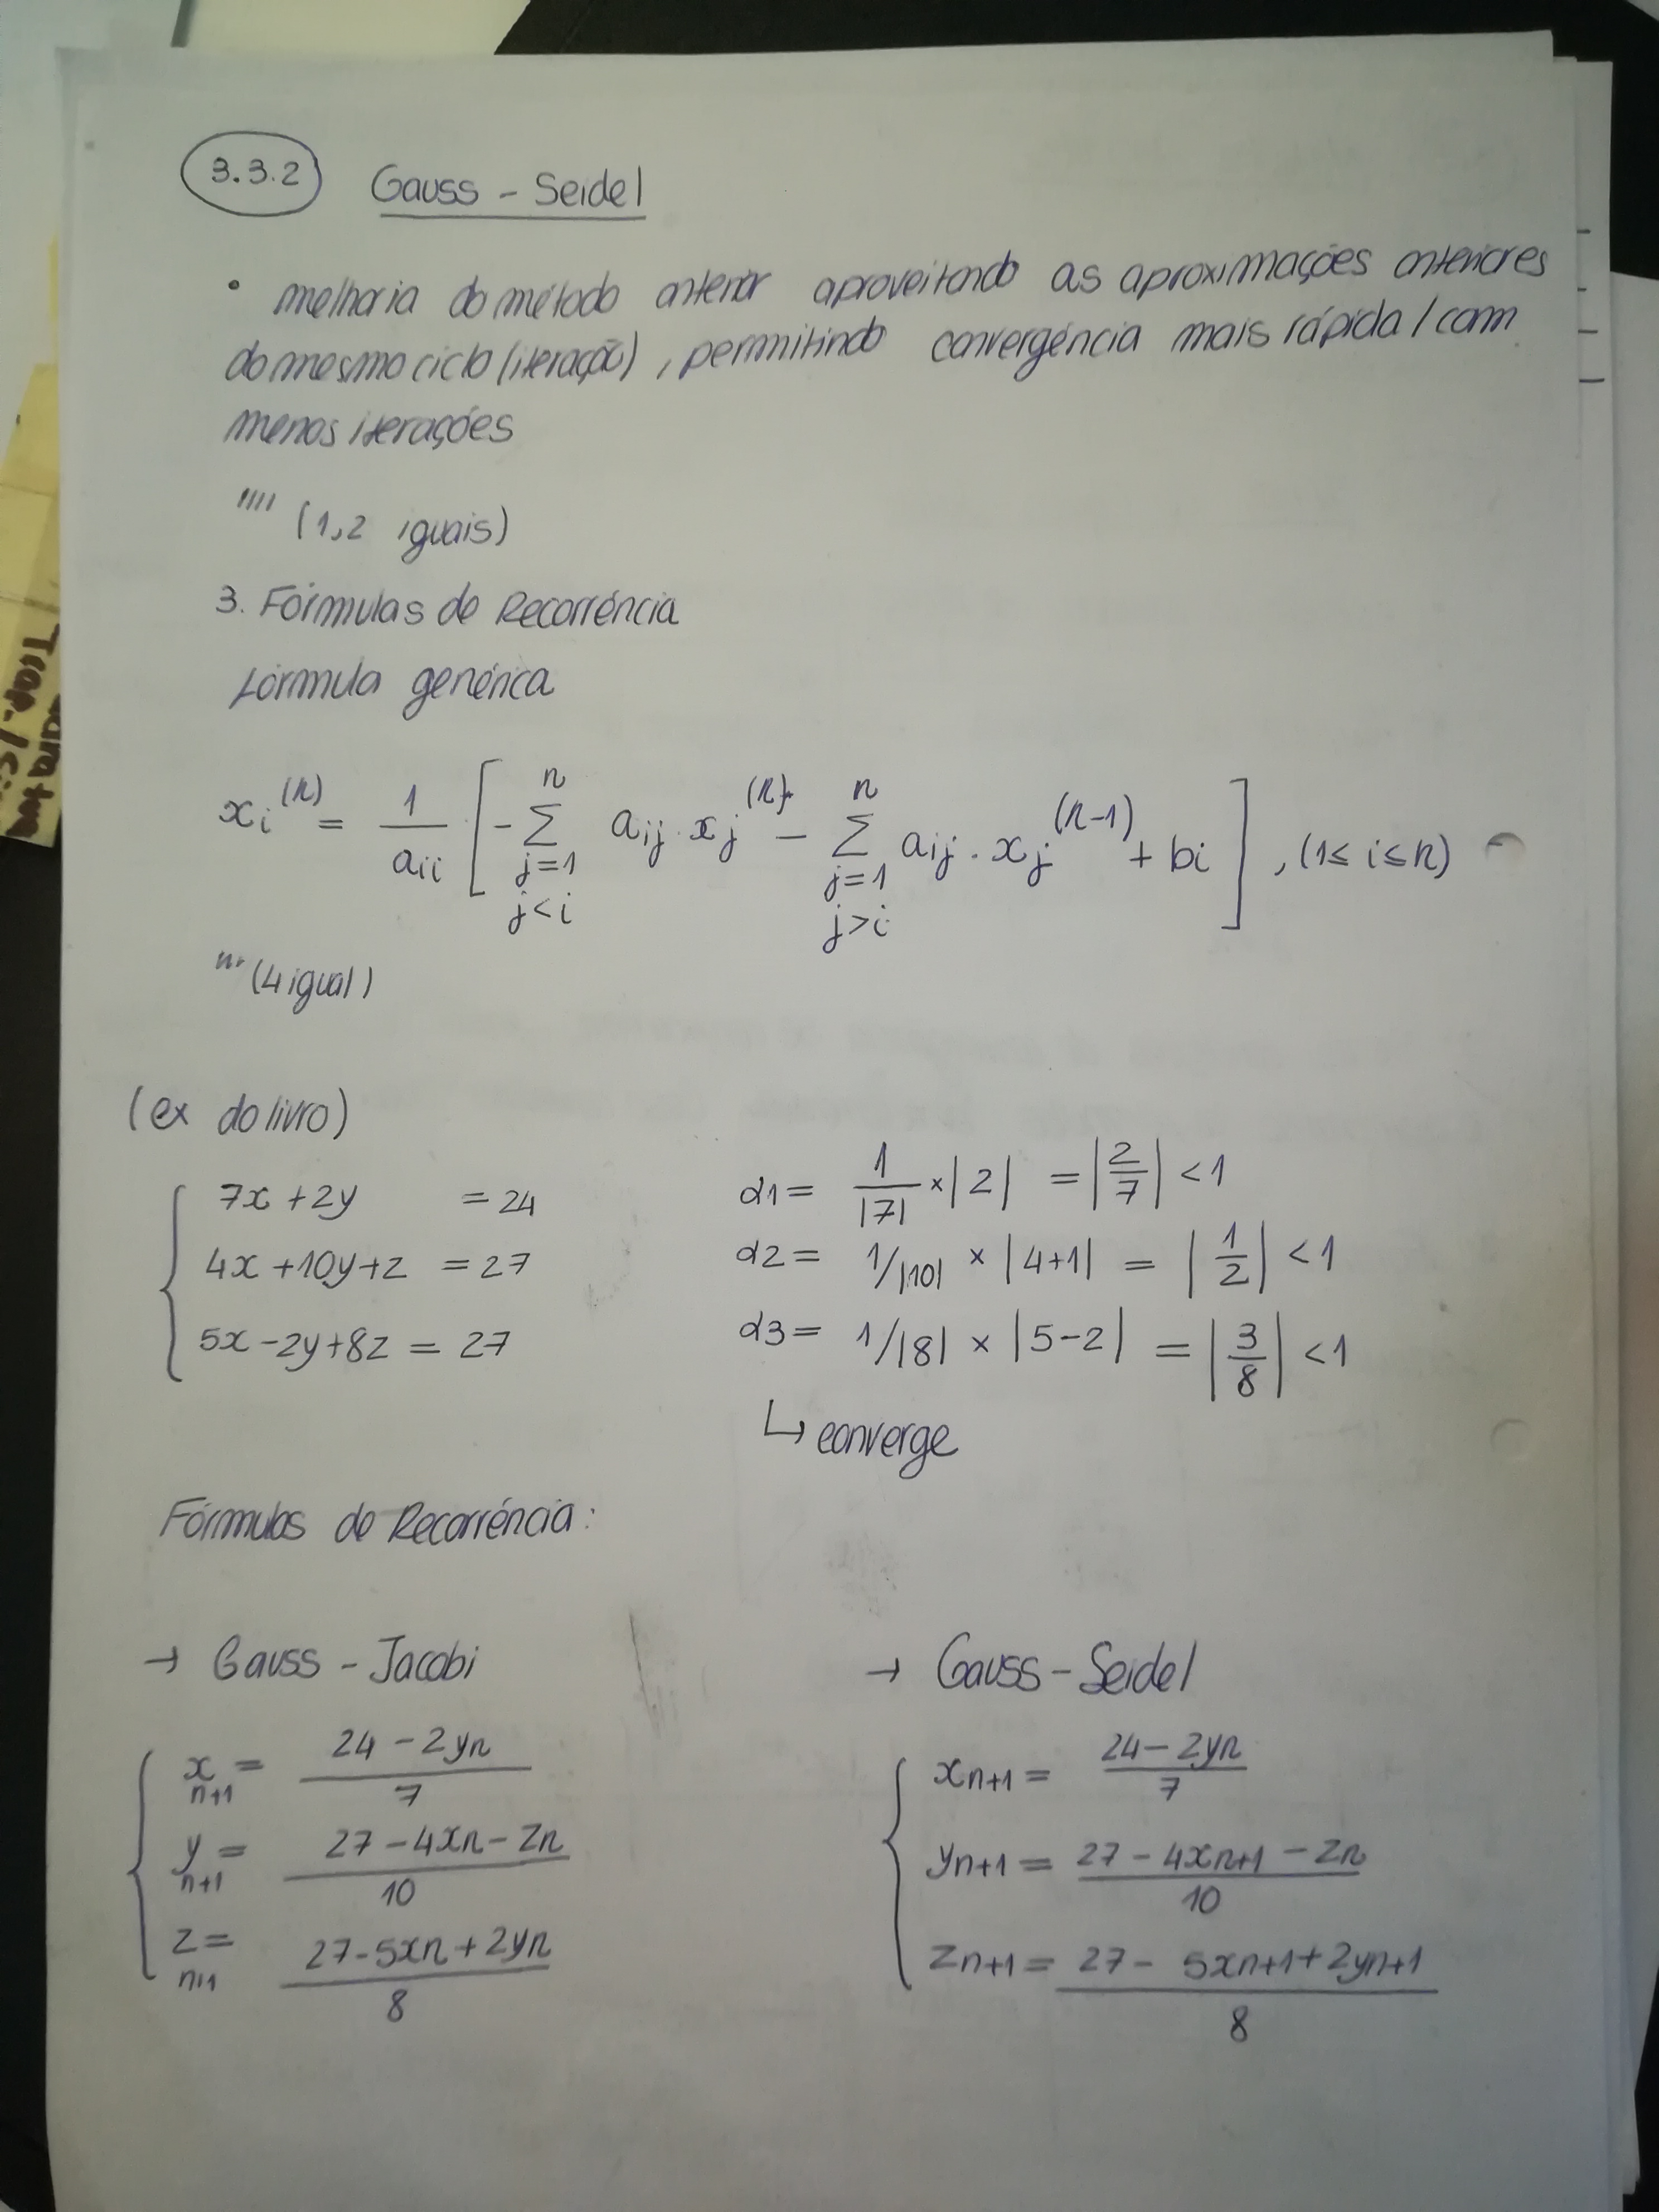 3.3.2 Gauss - Seidel
• melhoria do método anterior aproveitando as aproximações anteriores
do mesmo ciclo (iteração), permitindo convergência mais rápida / com
menos iterações
'''' (1,2 iguais)
3. Fórmulas de Recorrência
fórmula genérica
xi^(n) = 1/aii [ - Σ(j=1, j<i)^n aij · xj^(n) - Σ(j=1, j>i)^n aij · xj^(n-1) + bi ] , (1 ≤ i ≤ n)
''' (4 igual)
(ex do livro)
7x + 2y = 24 α1 = 1/|7| × |2| = |2/7| < 1
4x + 10y + z = 27 α2 = 1/|10| × |4+1| = |1/2| < 1
5x - 2y + 8z = 27 α3 = 1/|8| × |5-2| = |3/8| < 1
↳ converge
Fórmulas de Recorrência:
→ Gauss - Jacobi → Gauss - Seidel
x n+1 = 24 - 2yn / 7 xn+1 = 24 - 2yn / 7
y n+1 = 27 - 4xn - zn / 10 yn+1 = 27 - 4xn+1 - zn / 10
z n+1 = 27 - 5xn + 2yn / 8 zn+1 = 27 - 5xn+1 + 2yn+1 / 8